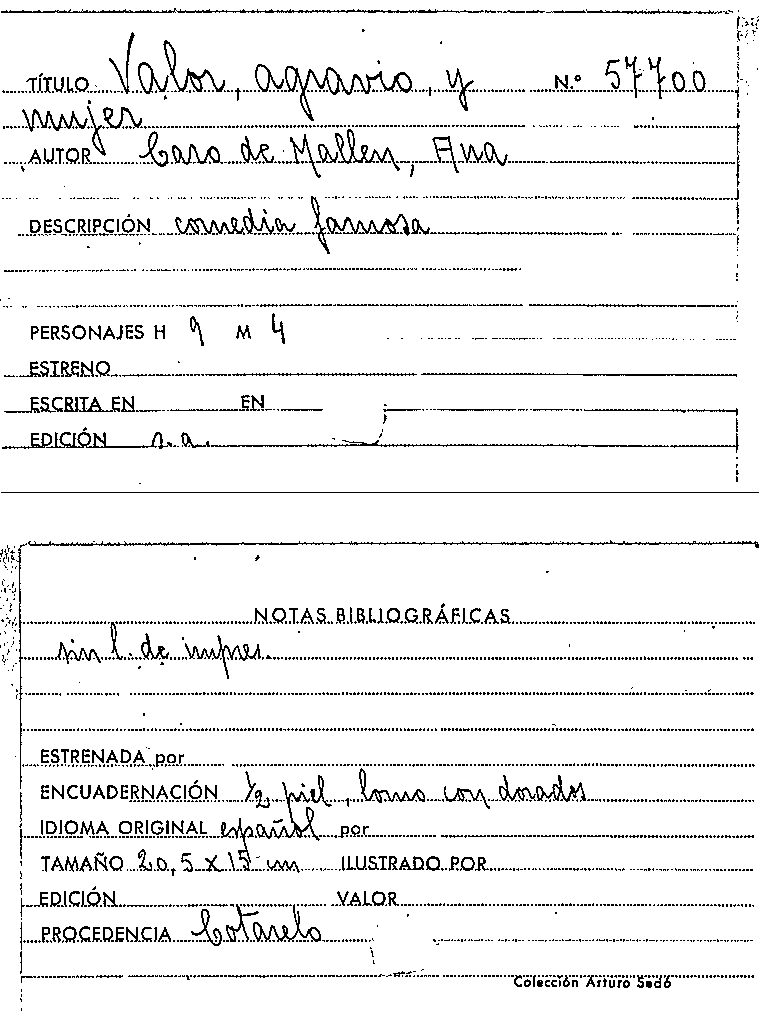 TÍTULO Valor, agravio, y N.º 57700
mujer
AUTOR Caro de Mallen, Ana
DESCRIPCIÓN comedia famosa
PERSONAJES H 9 M 4
ESTRENO
ESCRITA EN EN
EDICIÓN s.a.
NOTAS BIBLIOGRÁFICAS
sin l. de impres.
ESTRENADA por
ENCUADERNACIÓN 1/2 piel, lomo con dorados
IDIOMA ORIGINAL español por
TAMAÑO 20,5 x 15 cm ILUSTRADO POR
EDICIÓN VALOR
PROCEDENCIA Cotarelo
Colección Arturo Sedó